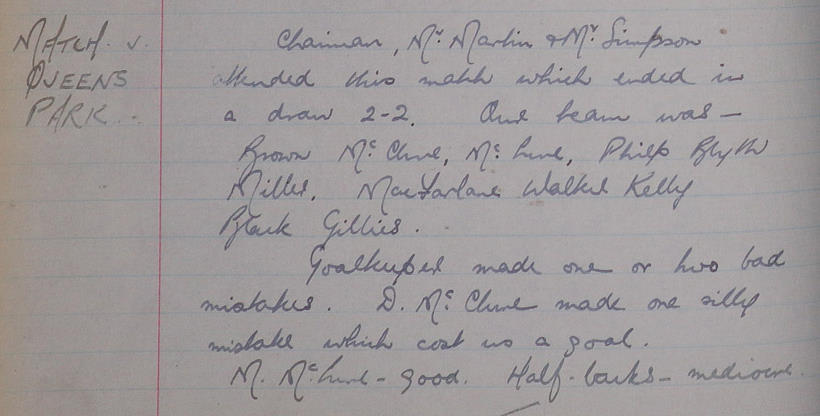 MATCH. v.
QUEENS
PARK.
Chairman, Mr. Martin & Mr. Simpson
attended this match which ended in
a draw 2-2. Our team was —
Brown McClure, McLure, Philp Blyth
Miller. MacFarlane Walker Kelly
Black Gillies.
Goalkeeper made one or two bad
mistakes. D. McClure made one silly
mistake which cost us a goal.
M. McLure - good. Half-backs - mediocre.